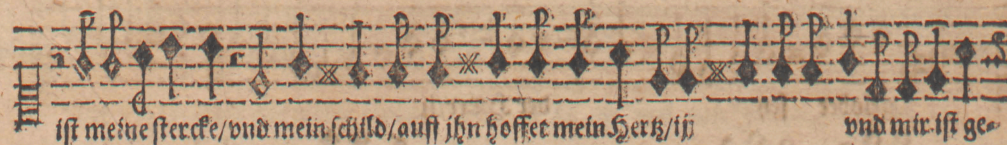 ist meine stercke/vnd mein schild/auff jhn hoffet mein Hertz/ij vnd mir ist ge-